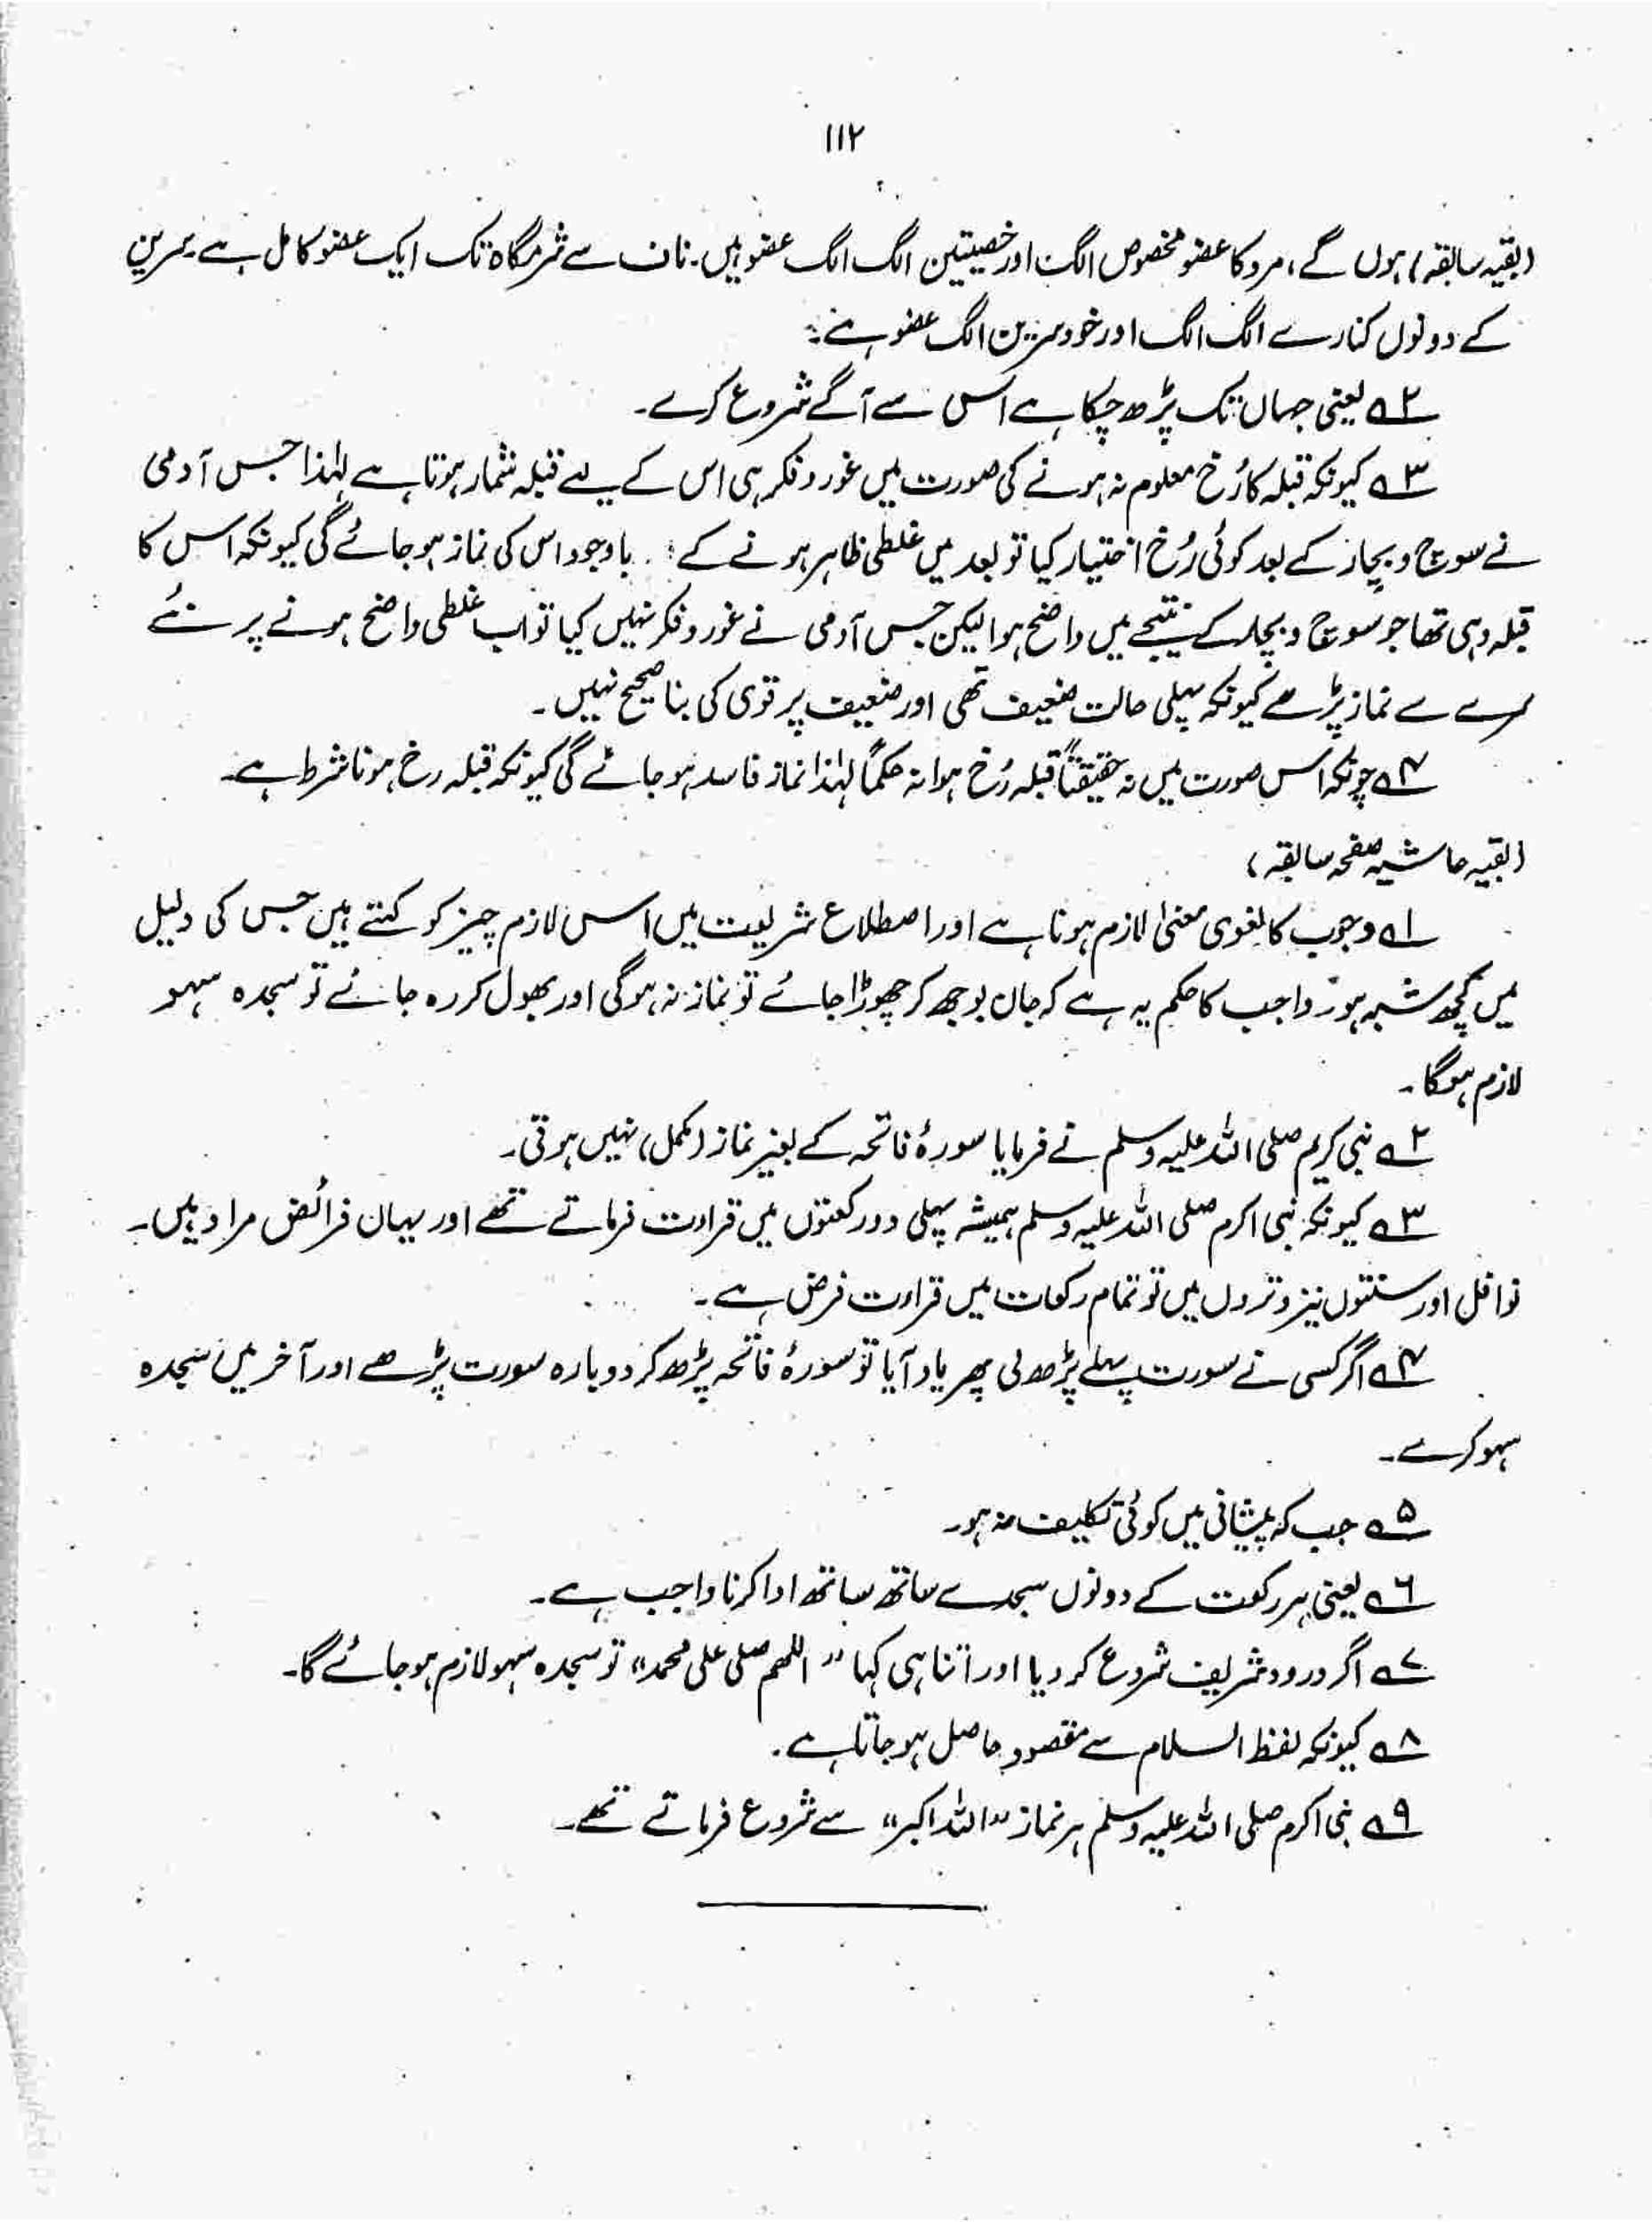 ۱۱۲
(بقیہ سابقہ) ہوں گے، مرد کا عضو مخصوص الگ اور خصیتین الگ الگ عضو ہیں۔ ناف سے شرمگاہ تک ایک عضو کامل ہے۔ سرین
کے دونوں کنارے الگ الگ اور خود سرین الگ عضو ہے۔
۲؎ یعنی جہاں تک پڑھ چکا ہے اس سے آگے شروع کرے۔
۳؎ کیونکہ قبلہ کا رُخ معلوم نہ ہونے کی صورت میں غور و فکر ہی اس کے لیے قبلہ شمار ہوتا ہے لہٰذا جس آدمی
نے سوچ و بچار کے بعد کوئی رُخ اختیار کیا تو بعد میں غلطی ظاہر ہونے کے باوجود اس کی نماز ہو جائے گی کیونکہ اس کا
قبلہ وہی تھا جو سوچ و بچار کے نتیجے میں واضح ہوا لیکن جس آدمی نے غور و فکر نہیں کیا تو اب غلطی واضح ہونے پر نئے
سرے سے نماز پڑھے کیونکہ پہلی حالت ضعیف تھی اور ضعیف پر قوی کی بنا صحیح نہیں۔
۴؎ چونکہ اس صورت میں نہ حقیقتاً قبلہ رُخ ہوا نہ حکماً لہٰذا نماز فاسد ہو جائے گی کیونکہ قبلہ رخ ہونا شرط ہے۔
(بقیہ حاشیہ صفحہ سابقہ)
۱؎ وجوب کا لغوی معنیٰ لازم ہونا ہے اور اصطلاع شریعت میں اس لازم چیز کو کہتے ہیں جس کی دلیل
میں کچھ شبہ ہو۔ واجب کا حکم یہ ہے کہ جان بوجھ کر چھوڑا جائے تو نماز نہ ہوگی اور بھول کر رہ جائے تو سجدہ سہو
لازم ہوگا۔
۲؎ نبی کریم صلی اللہ علیہ وسلم نے فرمایا سورۂ فاتحہ کے بغیر نماز (مکمل) نہیں ہوتی۔
۳؎ کیونکہ نبی اکرم صلی اللہ علیہ وسلم ہمیشہ پہلی دو رکعتوں میں قراءت فرماتے تھے اور یہاں فرائض مراد ہیں۔
نوافل اور سنتوں نیز وتروں میں تو تمام رکعات میں قراءت فرض ہے۔
۴؎ اگر کسی نے سورت پہلے پڑھ لی پھر یاد آیا تو سورۂ فاتحہ پڑھ کر دوبارہ سورت پڑھے اور آخر میں سجدہ
سہو کرے۔
۵؎ جب کہ پیشانی میں کوئی تکلیف نہ ہو۔
۶؎ یعنی ہر رکعت کے دونوں سجدے ساتھ ساتھ ادا کرنا واجب ہے۔
۷؎ اگر درود شریف شروع کر دیا اور اتنا ہی کہا "اللھم صلی علی محمد" تو سجدہ سہو لازم ہو جائے گا۔
۸؎ کیونکہ لفظ السلام سے مقصود حاصل ہو جاتا ہے۔
۹؎ نبی اکرم صلی اللہ علیہ وسلم ہر نماز "اللہ اکبر" سے شروع فرماتے تھے۔